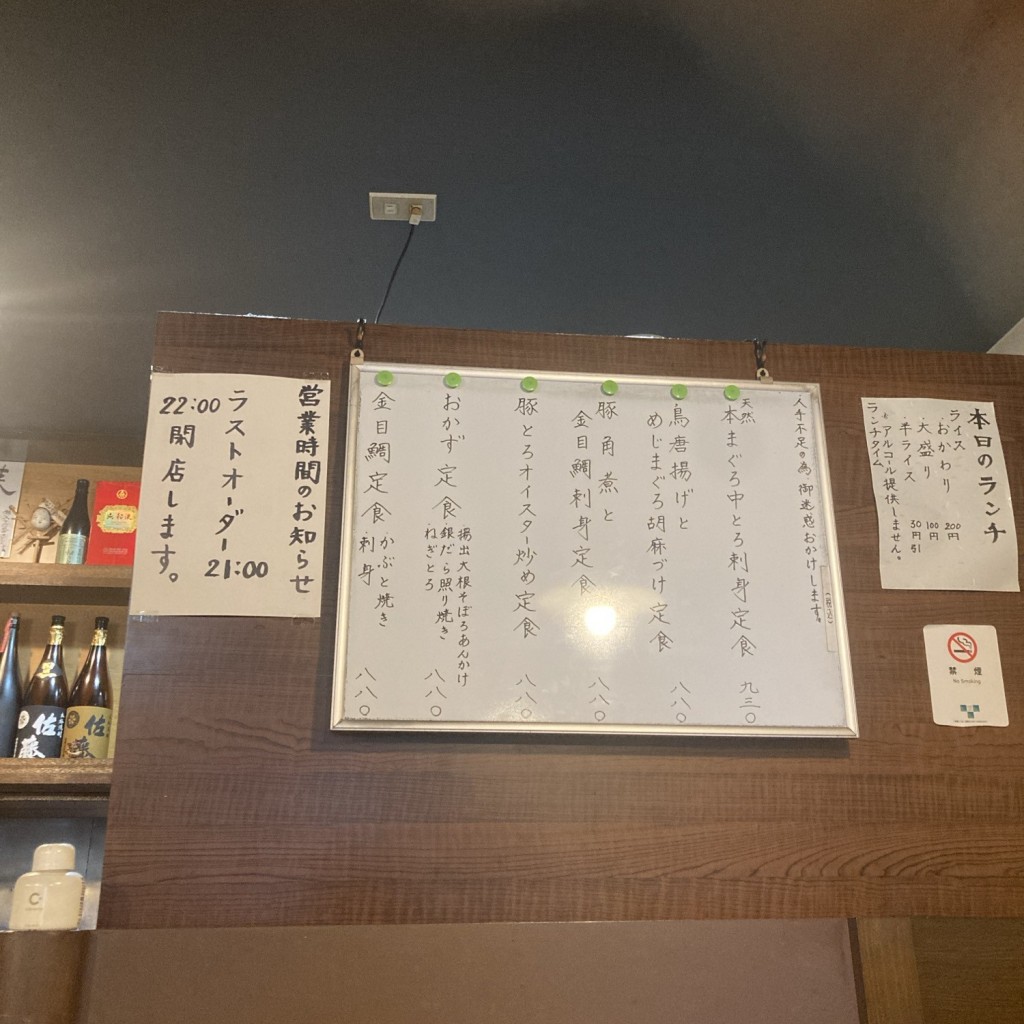 本日のランチ
ライス
・おかわり 200円
・大盛り 100円
・半ライス 30円引
ランチタイム
アルコール提供しません。
禁煙
No Smoking
人手不足の為、御迷惑おかけします。
(税込)
天然
本まぐろ中とろ刺身定食 九三〇
鳥唐揚げと
めじまぐろ胡麻づけ定食 八八〇
豚角煮と
金目鯛刺身定食 八八〇
豚とろオイスター炒め定食 八八〇
おかず定食
揚出大根そぼろあんかけ
銀だら照り焼き
ねぎとろ
八八〇
金目鯛定食
かぶと焼き
刺身
八八〇
営業時間のお知らせ
ラストオーダー21:00
22:00閉店します。
佐藤
佐藤